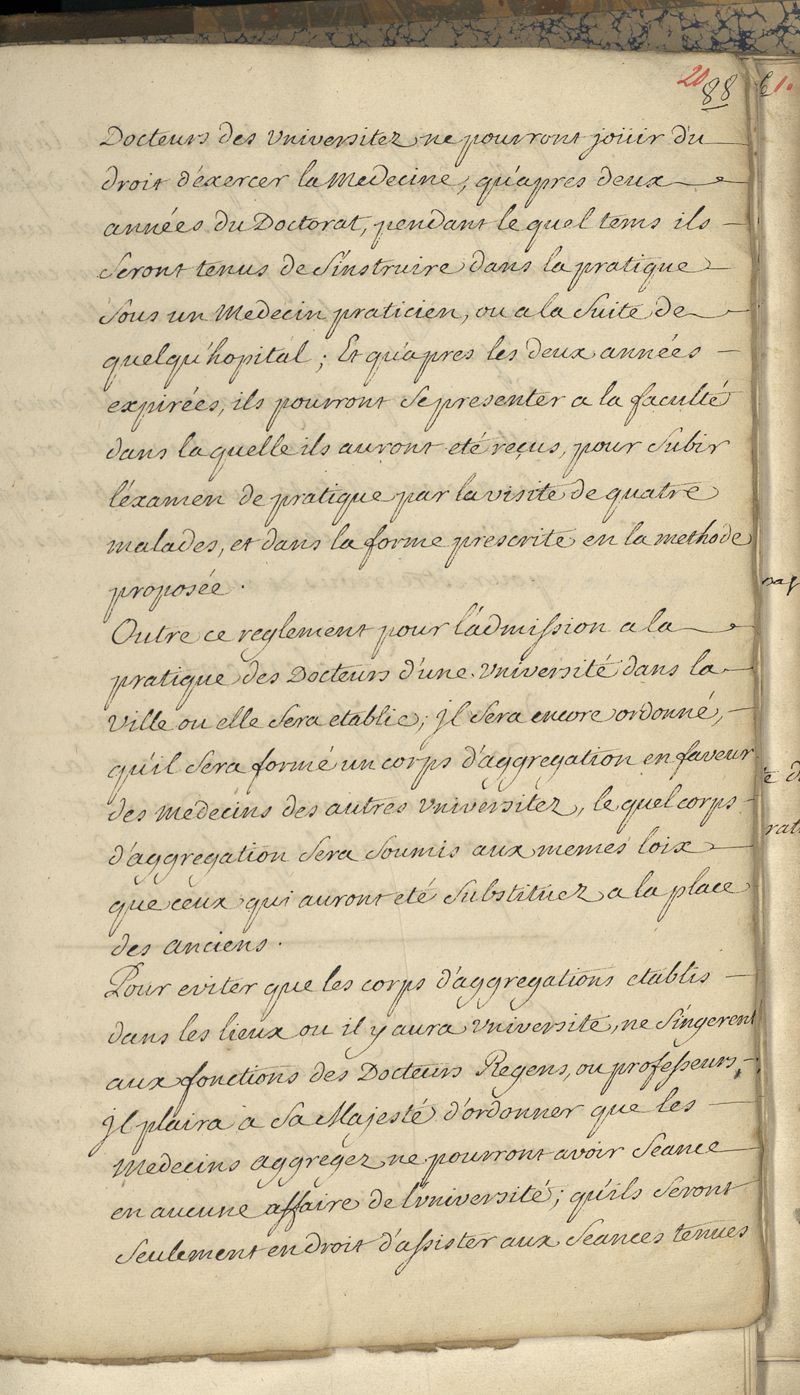 20
88
61.
Docteurs des Universitez ne pourront joüir du
droit d'éxercer la Medecine, qu'apres deux
années du Doctorat, pendant le quel tems ils
seront tenus de s'instruire dans la pratique
sous un Medecin praticien, ou a la suite de
quelqu'hopital ; Et qu'apres les deux années
expirées, ils pourront se presenter a la faculté
dans la quelle ils auront eté reçus, pour subir
l'éxamen de pratique par la visite de quatre
malades, et dans la forme prescrite en la methode
proposée.
Outre ce reglement pour l'admission a la
pratique des Docteurs d'une Université dans la
Ville ou elle sera etablie, Jl sera encore ordonné,
qu'il sera formé un corps d'aggregation en faveur
des Medecins des autres Universitez, le quel corps
d'aggregation sera soumis aux memes loix
que ceux qui auront eté substituez a la place
des anciens.
Pour eviter que les corps d'aggregations etablis
dans les lieux ou il y aura Université, ne s'ingerent
aux fonctions des Docteurs Regens, ou professeurs,
Jl plaira a Sa Majesté d'ordonner que les
Medecins aggregez ne pourront avoir seance
en aucune affaire de l'université ; qu'ils seront
seulement en droit d'assister aux seances tenues